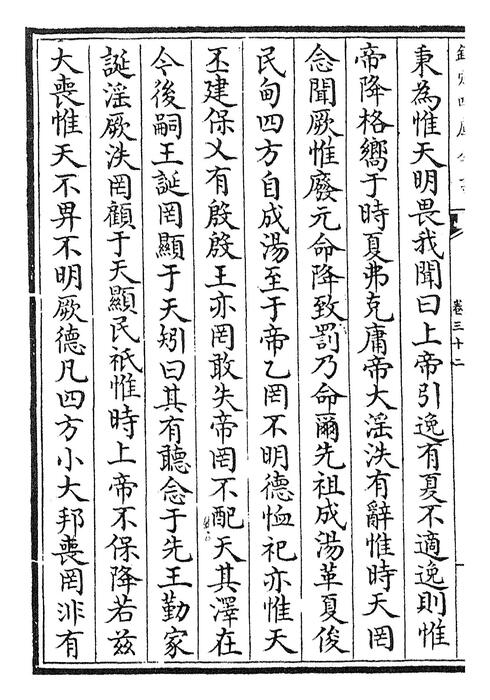 卷三十二
秉為惟天明畏我聞曰上帝引逸有夏不適逸則惟
帝降格嚮于時夏弗克庸帝大淫泆有辭惟時天罔
念聞厥惟廢元命降致罰乃命爾先祖成湯革夏俊
民甸四方自成湯至于帝乙罔不明德恤祀亦惟天
丕建保乂有殷殷王亦罔敢失帝罔不配天其澤在
今後嗣王誕罔顯于天矧曰其有聽念于先王勤家
誕淫厥泆罔顧于天顯民祇惟時上帝不保降若茲
大喪惟天不畀不明厥德凡四方小大邦喪罔非有